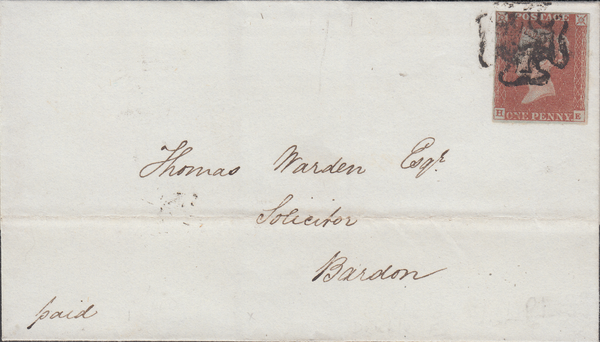 POSTAGE
H ONE PENNY E
Thomas Warden Esqr
Solicitor
Bardon
paid